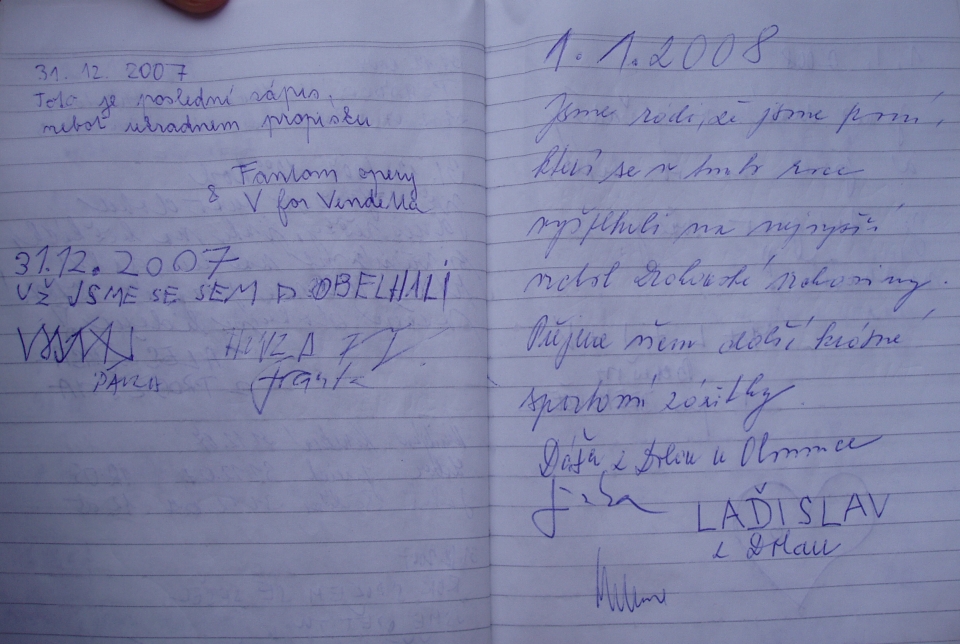 31. 12. 2007
Toto je poslední zápis,
neboť ukradnem propisku
Fantom opery
& V for Vendetta
31.12.2007
UŽ JSME SE SEM DOBELHALI
PAVZA
HINZA
Franta
1.1.2008
Jsme rádi, že jsme první,
kteří se v tomto roce
vyšplhali na nejvyšší
vrchol Drahanské vrchoviny.
Přejme všem další krásné
sportovní zážitky
Dáša z Drlau u Olomouce
Jirka
LAĎISLAV
z Drlau